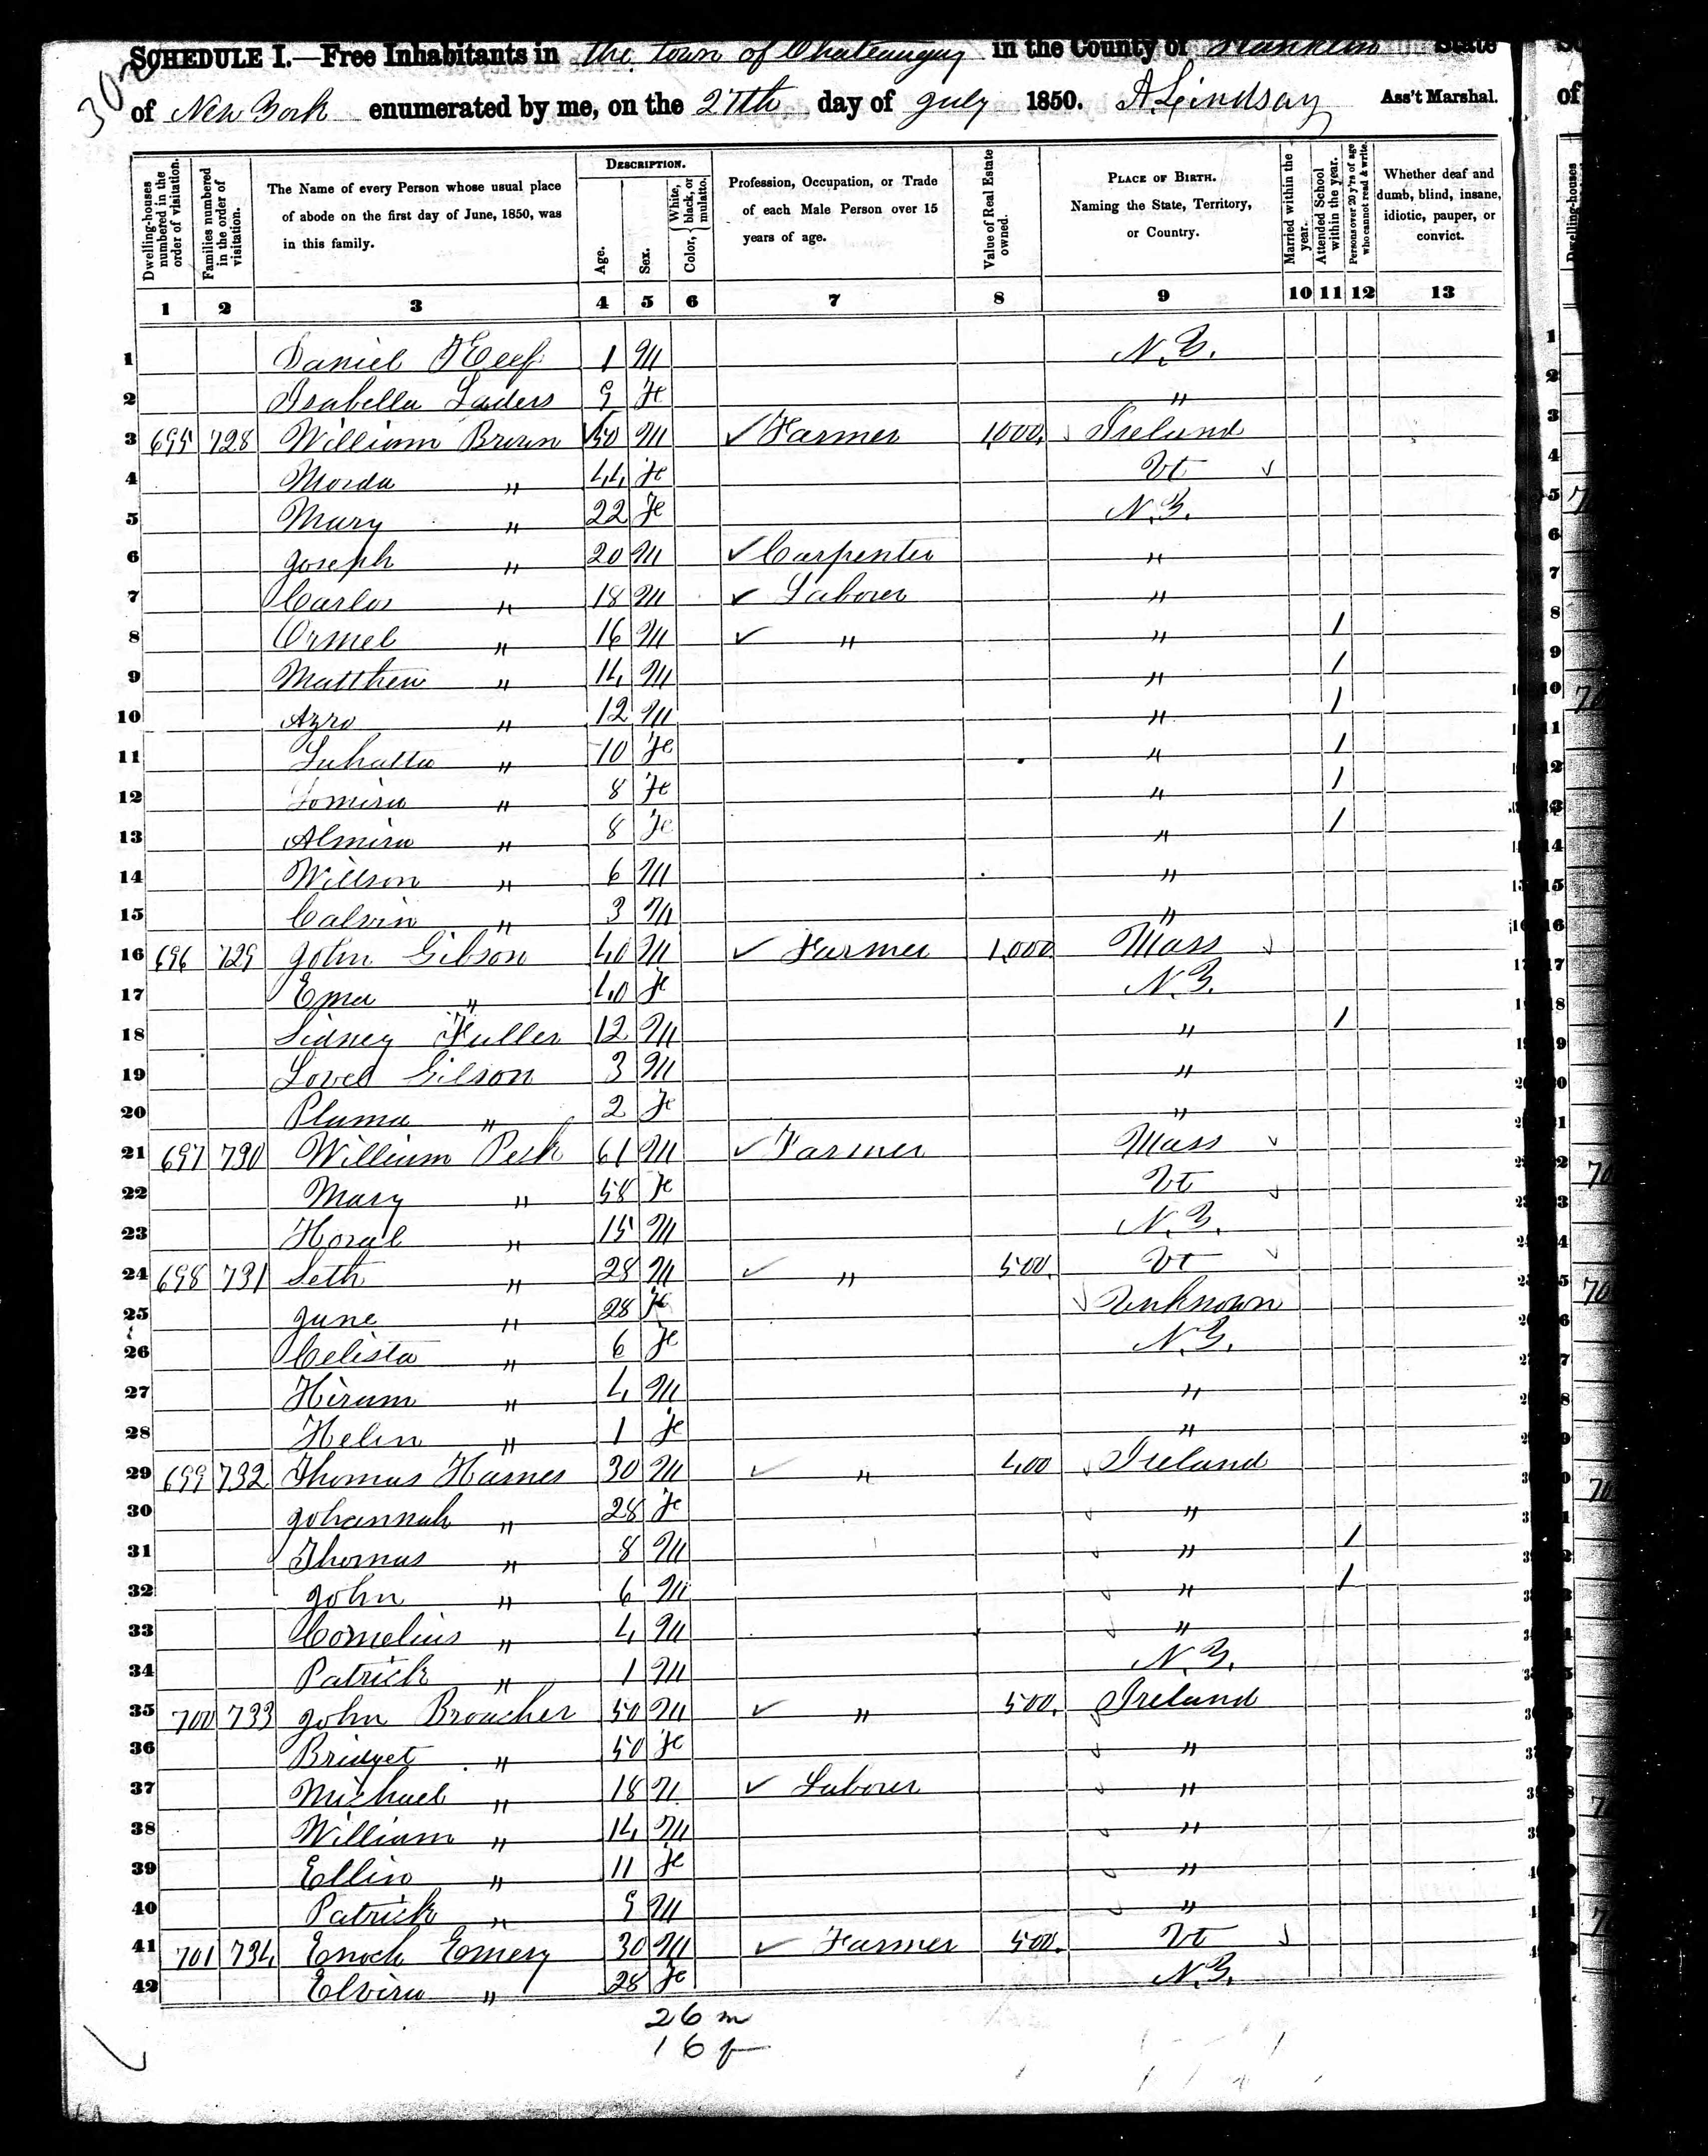 SCHEDULE I.—Free Inhabitants in the town of Chateaugay in the County of Franklin State
of New York enumerated by me, on the 27th day of July 1850. A Lindsay Ass't Marshal.
Dwelling-houses numbered in the order of visitation.
Families numbered in the order of visitation.
The Name of every Person whose usual place of abode on the first day of June, 1850, was in this family.
DESCRIPTION.
Age.
Sex.
Color, White, black, or mulatto.
Profession, Occupation, or Trade of each Male Person over 15 years of age.
Value of Real Estate owned.
PLACE OF BIRTH. Naming the State, Territory, or Country.
Married within the year.
Attended School within the year.
Persons over 20 y'rs of age who cannot read & write.
Whether deaf and dumb, blind, insane, idiotic, pauper, or convict.
1 2 3 4 5 6 7 8 9 10 11 12 13
1 Daniel 1 M N.Y.
2 Isabella 9 Fe "
3 695 728 William Brown 50 M ✓ Farmer 1,000. Ireland
4 " 44 Fe Vt
5 Mary " 22 Fe N.Y.
6 Joseph " 20 M ✓ Carpenter "
7 Carlos " 18 M ✓ Laborer "
8 Ormel " 16 M ✓ " " 1
9 Matthew " 14 M " 1
10 Azro " 12 M " 1
11 " 10 Fe " 1
12 " 8 Fe " 1
13 Almira " 8 Fe " 1
14 Willson " 6 M "
15 Calvin " 3 M "
16 696 729 John Gibson 40 M ✓ Farmer 1,000 Mass
17 Ema " 40 Fe N.Y.
18 Sidney Fuller 12 M " 1
19 Lovel Gilson 3 M "
20 Pluma " 2 Fe "
21 697 730 William Peck 61 M ✓ Farmer Mass
22 Mary " 58 Fe Vt
23 " 15 M N.Y.
24 698 731 Seth " 28 M ✓ " 500. Vt
25 Jane " 28 Fe Unknown
26 Celista " 6 Fe N.Y.
27 Hiram " 4 M "
28 Helen " 1 Fe "
29 699 732 Thomas Harnes 30 M ✓ " 400 Ireland
30 Johannah " 28 Fe "
31 Thomas " 8 M " 1
32 John " 6 M " 1
33 Cornelius " 4 M "
34 Patrick " 1 M N.Y.
35 700 733 John Broucher 50 M ✓ " 500. Ireland
36 Bridget " 50 Fe "
37 Michael " 18 M ✓ Laborer "
38 William " 14 M "
39 Ellin " 11 Fe "
40 Patrick " 9 M "
41 701 734 Enoch Emery 30 M ✓ Farmer 500. Vt
42 Elvira " 28 Fe N.Y.
26 m
16 f